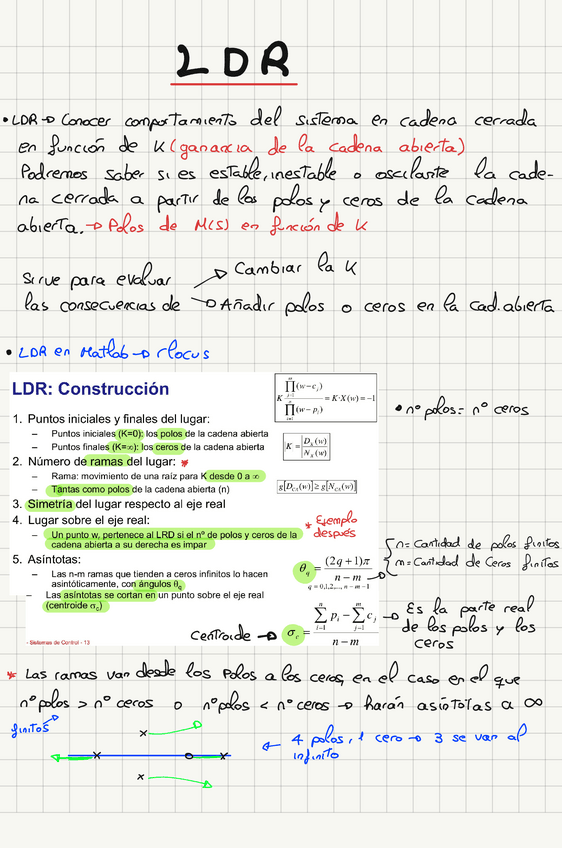 LDR
• LDR → Conocer comportamiento del sistema en cadena cerrada
en función de K (ganancia de la cadena abierta)
Podremos saber si es estable, inestable o oscilante la cade-
na cerrada a partir de los polos y ceros de la cadena
abierta. → Polos de M(S) en función de K
Sirve para evaluar
las consecuencias de
→ Cambiar la K
→ Añadir polos o ceros en la cad. abierta
• LDR en Matlab → rlocus
LDR: Construcción
1. Puntos iniciales y finales del lugar:
– Puntos iniciales (K=0): los polos de la cadena abierta
– Puntos finales (K=∞): los ceros de la cadena abierta
2. Número de ramas del lugar: *
– Rama: movimiento de una raíz para K desde 0 a ∞
– Tantas como polos de la cadena abierta (n)
3. Simetría del lugar respecto al eje real
4. Lugar sobre el eje real:
– Un punto w, pertenece al LRD si el nº de polos y ceros de la
cadena abierta a su derecha es impar
5. Asíntotas:
– Las n-m ramas que tienden a ceros infinitos lo hacen
asintóticamente, con ángulos θq
– Las asíntotas se cortan en un punto sobre el eje real
(centroide σc)
- Sistemas de Control - 13
K ∏(w−c_j) j=1 m / ∏(w−p_i) = K·X(w) = −1
K = |D_A(w)/N_A(w)|
g[D_CA(w)] ≥ g[N_CA(w)]
* Ejemplo
después
θq = (2q+1)π / n−m
q = 0,1,2,..., n−m−1
σc = (∑ p_i − ∑ c_j) / n−m
Centroide →
• nº polos = nº ceros
n = Cantidad de polos finitos
m = Cantidad de Ceros finitos
→ Es la parte real
de los polos y los
ceros
* Las ramas van desde los Polos a los ceros, en el caso en el que
nº polos > nº ceros o nº polos < nº ceros → harán asíntotas a ∞
finitos
← 4 polos, 1 cero → 3 se van al
infinito